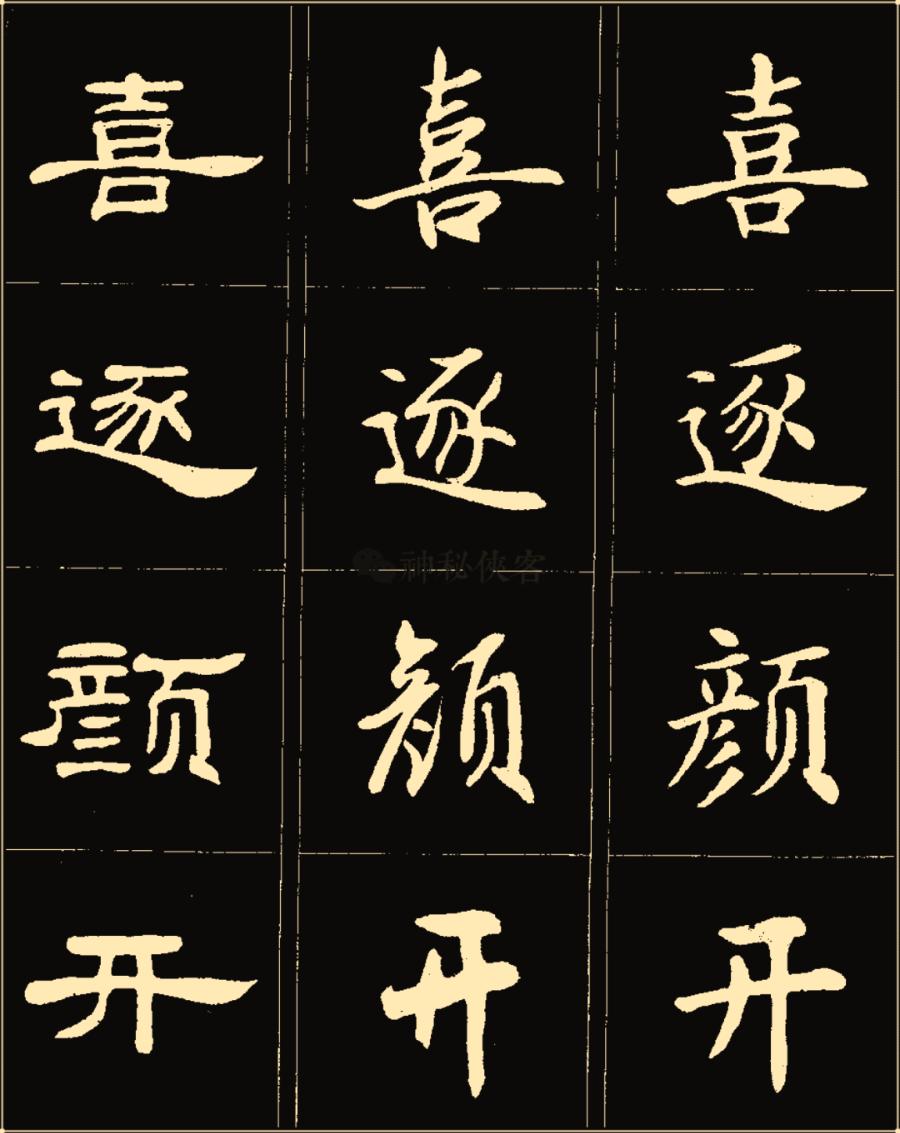 喜 喜 喜
逐 逐 逐
神秘侠客
颜 颜 颜
开 开 开